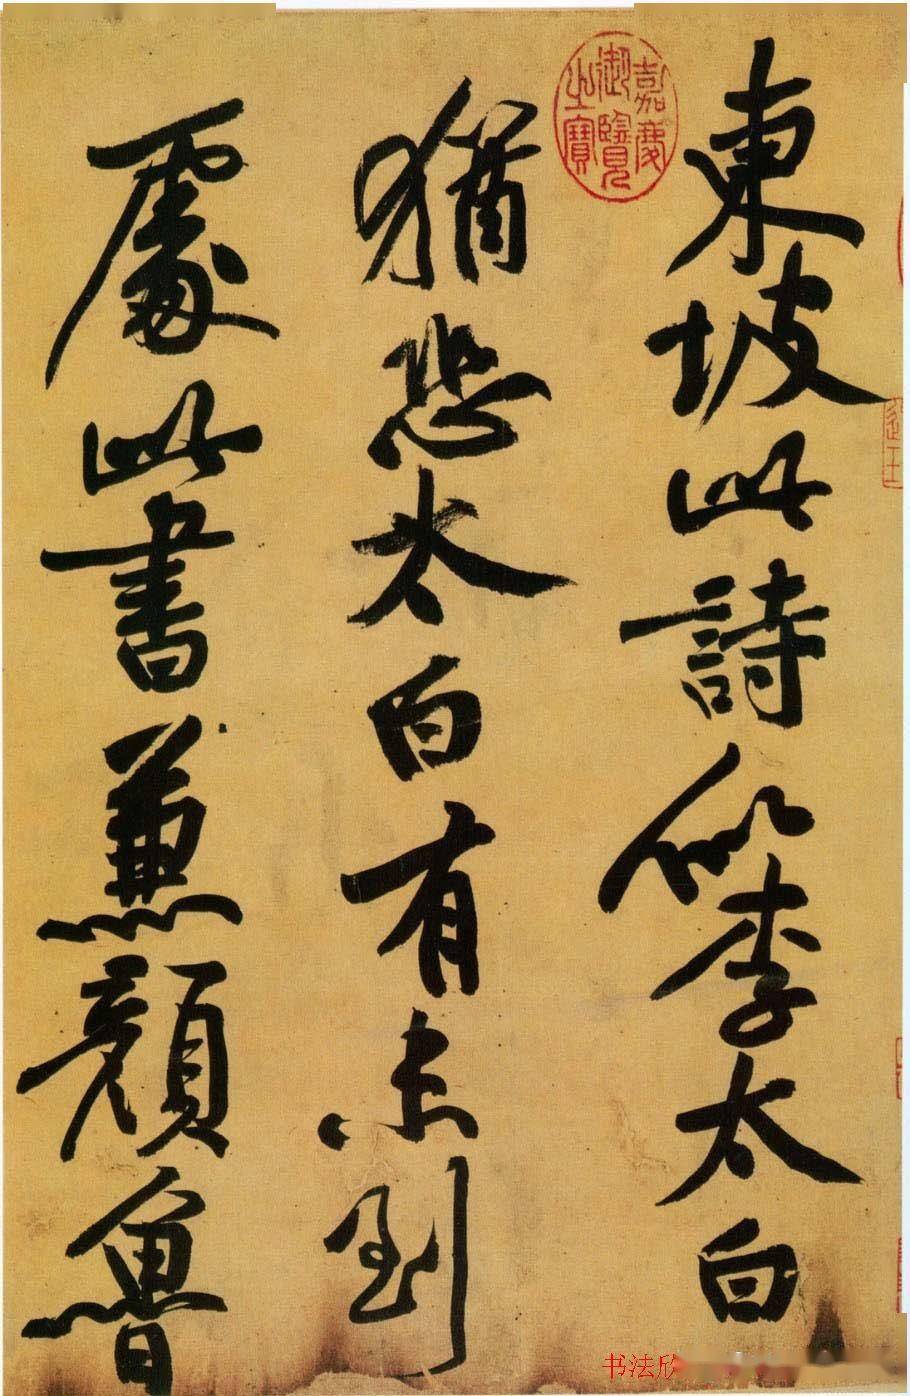 東坡此詩似李太白
猶恐太白有未到
處此書兼顏魯
嘉慶
御覽
之寶
书法欣